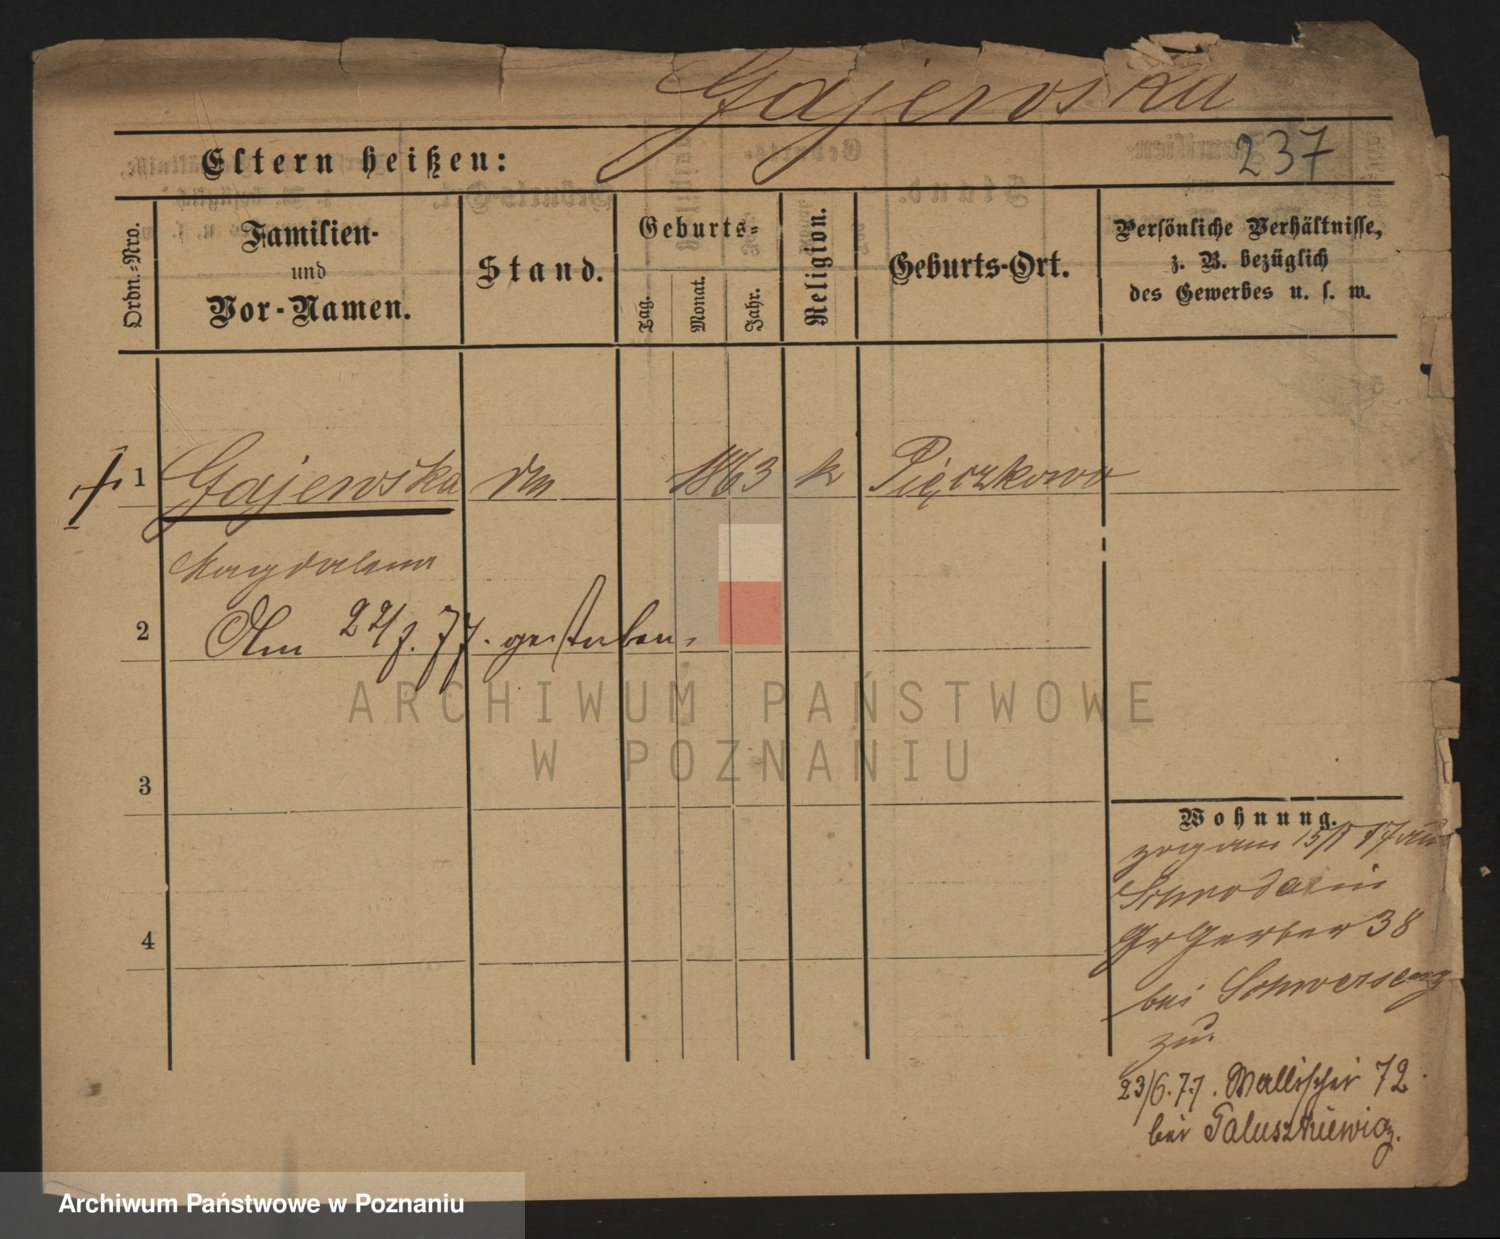 Gajewska
237
Eltern heißen:
Ordn.-Nro.
Familien-
und
Vor-Namen.
Stand.
Geburts-
Tag.
Monat.
Jahr.
Religion.
Geburts-Ort.
Persönliche Verhältnisse,
z. B. bezüglich
des Gewerbes u. s. w.
1 Gajewska 1863 k Pięczkowo
Magdalena
2 Am 22/7. 77. gestorben.
ARCHIWUM PAŃSTWOWE
W POZNANIU
3
Wohnung.
zog am 15/ 77 aus
Schroda in
4 Gr Gerber 38
bei Schwersenz
zu.
23/6.77. Wallischei 72
bei Paluszkiewicz.
Archiwum Państwowe w Poznaniu